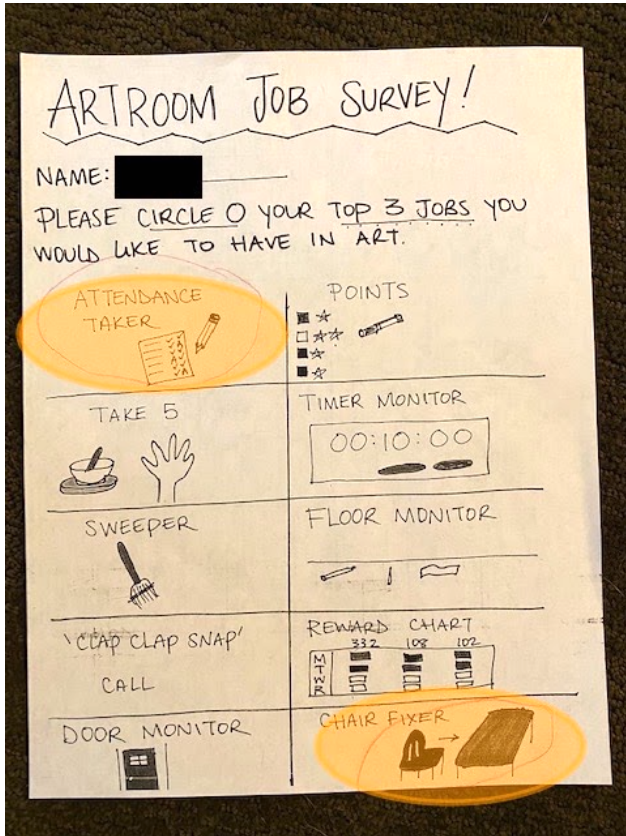 ARTROOM JOB SURVEY!
NAME:
PLEASE CIRCLE O YOUR TOP 3 JOBS YOU
WOULD LIKE TO HAVE IN ART.
ATTENDANCE
TAKER
POINTS
TAKE 5
TIMER MONITOR
00:10:00
SWEEPER
FLOOR MONITOR
'CLAP CLAP SNAP'
CALL
REWARD CHART
332 108 102
M
T
W
R
DOOR MONITOR
CHAIR FIXER